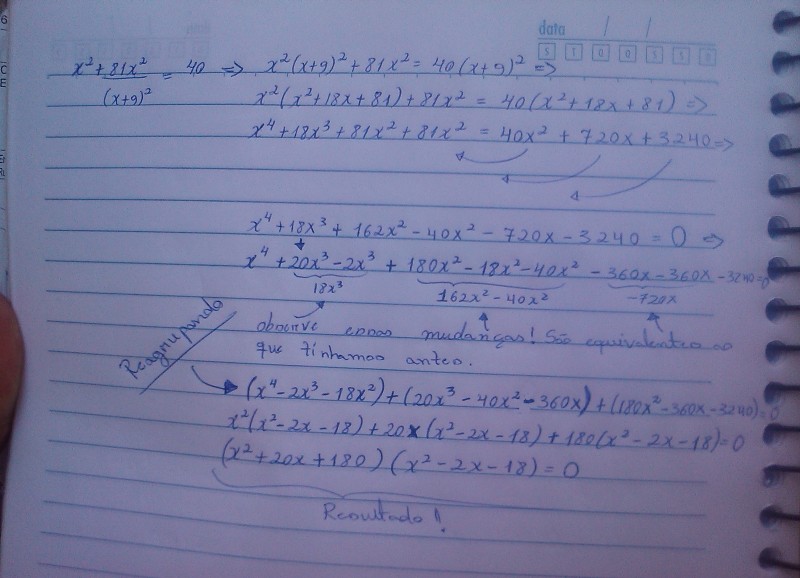 data / /
S T Q Q S S D
x² + 81x²/(x+9)² = 40 => x²(x+9)² + 81x² = 40(x+9)² =>
x²(x²+18x+81) + 81x² = 40(x²+18x+81) =>
x⁴ + 18x³ + 81x² + 81x² = 40x² + 720x + 3240 =>
x⁴ + 18x³ + 162x² - 40x² - 720x - 3240 = 0 =>
x⁴ + 20x³ - 2x³ + 180x² - 18x² - 40x² - 360x - 360x - 3240 = 0
18x³ 162x² - 40x² -720x
observe essas mudanças! São equivalentes ao
que tínhamos antes.
Reagrupando
(x⁴ - 2x³ - 18x²) + (20x³ - 40x² - 360x) + (180x² - 360x - 3240) = 0
x²(x² - 2x - 18) + 20x(x² - 2x - 18) + 180(x² - 2x - 18) = 0
(x² + 20x + 180)(x² - 2x - 18) = 0
Resultado!